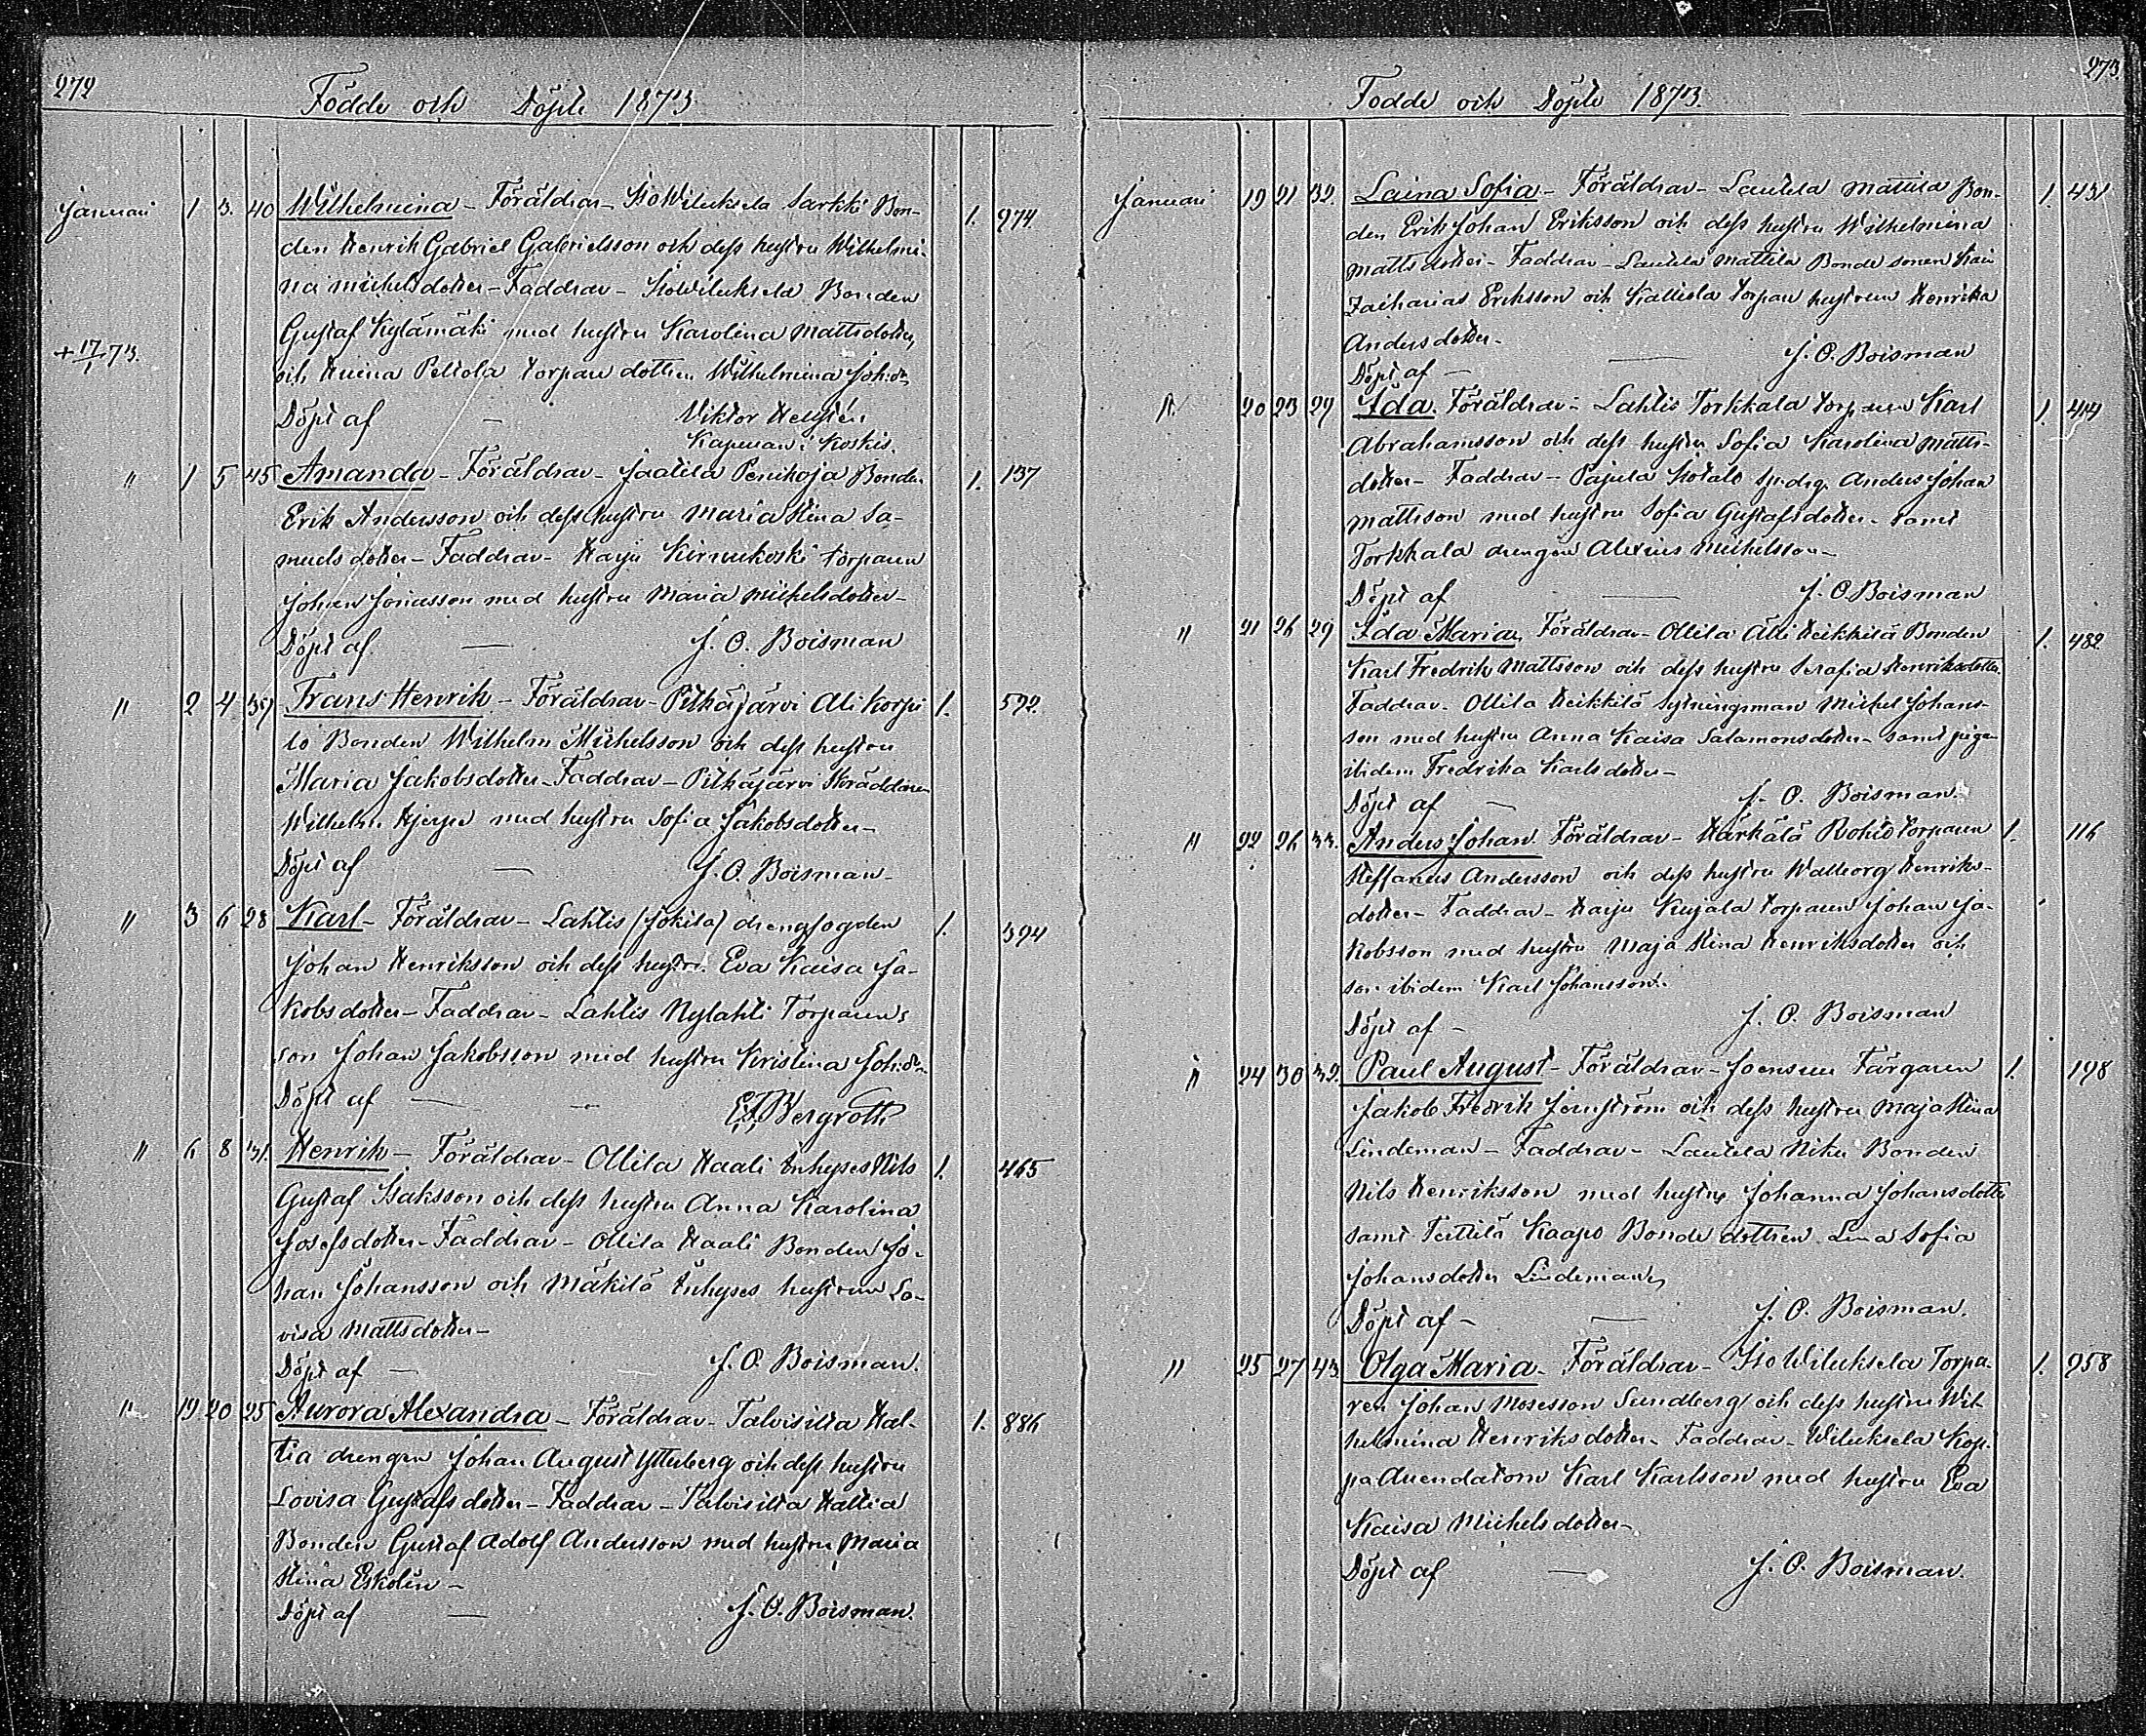 272
Födde och Döpte 1873
Januari 1 3. 40 Wilhelmina - Föräldrar - IsoWiluksela Sarkki Bon- 1. 974.
den Henrik Gabriel Gabrielsson och dess hustru Wilhelmi-
na Michelsdotter - Faddrar - IsoWiluksela Bonden
Gustaf Kylämäki med hustru Karolina Mattsdotter,
+ 17/1 73.
och Peltola torpare dottren Wilhelmina Joh:dr,
Döpt af - Viktor Hellstén
Kapman i Koskis.
" 1 5 45 Amanda - Föräldrar - Jaatila Penikoja Bonden 1. 137
Erik Andersson och dess hustru Maria Stina Sa-
muelsdotter - Faddrar - Harju Kirvukoski torparen
Johan Jonasson med hustru Maria Michelsdotter -
Döpt af - J. O. Boisman
" 2 4 39 Frans Henrik - Föräldrar - Pitkäjärvi Ali Korpi 1. 592.
lö Bonden Wilhelm Michelsson och dess hustru
Maria Jakobsdotter - Faddrar - Pitkäjärvi Skräddaren
Wilhelm Hjerpe med hustru Sofia Jakobsdotter -
Döpt af - J. O. Boisman -
" 3 6 28 Karl - Föräldrar - Lahtis (Jokila) drengfogden 1. 394
Johan Henriksson och dess hustru Eva Kaisa Ja-
kobsdotter - Faddrar - Lahtis Nylahti Torparens
son Johan Jakobsson med hustru Kristina Joh:dr -
Döpt af - E. F. Bergroth
" 6 8 31. Henrik - Föräldrar - Ollila Haali Inhyses Nils 1. 465
Gustaf Isaksson och dess hustru Anna Karolina
Josefsdotter - Faddrar - Ollila Haali Bonden Jo-
han Johansson och Mäkilä Inhyses hustrun Lo-
visa Mattsdotter -
Döpt af - J. O. Boisman.
" 19 20 25 Aurora Alexandra - Föräldrar - Talvisilta Hal- 1. 886
tia drengen Johan August Ytterberg och dess hustru
Lovisa Gustafsdotter - Faddrar - Talvisilta Haltia
Bonden Gustaf Adolf Andersson med hustru Maria
Stina Eskolin -
Döpt af - J. O. Boisman.
273.
Födde och Döpte 1873.
Januari 19 21 32. Laina Sofia - Föräldrar - Lautela Mattila Bon- 1. 431
den Erik Johan Eriksson och dess hustru Wilhelmina
Mattsdotter - Faddrar - Lautela Mattila Bonde sonen
Zacharias Eriksson och Kalliola torpare hustrun Henrika
Andersdotter -
Döpt af - J. O. Boisman
" 20 23 29 Ida. Föräldrar - Lahtis Torkkala torparen Karl 1. 414
Abrahamsson och dess hustru Sofia Karolina Matts-
dotter - Faddrar - Pajula Anders Johan
Mattsson med hustru Sofia Gustafsdotter - samt
Torkkala drengen Alexius Michelsson -
Döpt af - J. O. Boisman
" 21 26 29 Ida Maria. Föräldrar - Ollila Ali Heikkilä Bonden 1. 482.
Karl Fredrik Mattsson och dess hustru Serafia Henriksdotter.
Faddrar - Ollila Heikkilä Sytningsman Michel Johans-
son med hustru Anna Kaisa Salamonsdotter - samt pigan
ibidem Fredrika Karlsdotter -
Döpt af - J. O. Boisman.
" 22 26 33. Anders Johan. Föräldrar - Härkälä Rohio torparen 1. 116
Steffanus Andersson och dess hustru Walborg Henriks-
dotter - Faddrar - Harju Kujala torparen Johan Ja-
kobsson med hustru Maja Stina Henriksdotter och
son ibidem Karl Johansson.
Döpt af - J. O. Boisman
" 24 30 32. Paul August - Föräldrar - Joensuu Färgaren 1. 198
Jakob Fredrik Jernström och dess hustru Maja Stina
Lindeman - Faddrar - Lautela Niku Bonden
Nils Henriksson med hustru Johanna Johansdotter
samt Teittilä Kaapo Bonde dottren Lina Sofia
Johansdotter Lindeman,
Döpt af - J. O. Boisman.
" 25 27 43. Olga Maria - Föräldrar - Iso Wiluksela Torpa- 1. 958
ren Johan Mosesson Sundberg och dess hustru Wil-
helmina Henriksdotter - Faddrar - Wiluksela Kop-
pa Arendatorn Karl Karlsson med hustru Eva
Kaisa Michelsdotter -
Döpt af - J. O. Boisman.